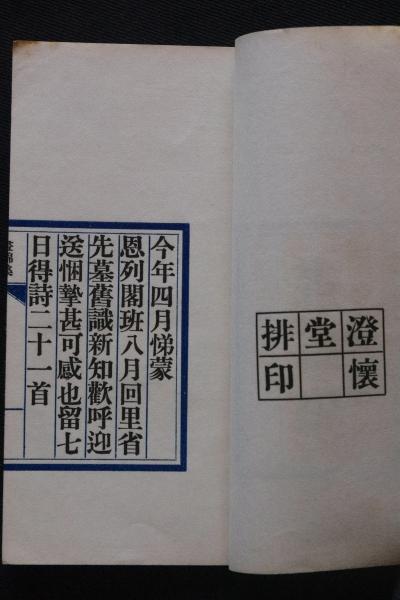 澄懷
堂
排印
今年四月悌蒙
恩列閣班八月回里省
先墓舊識新知歡呼迎
送悃摯甚可感也留七
日得詩二十一首